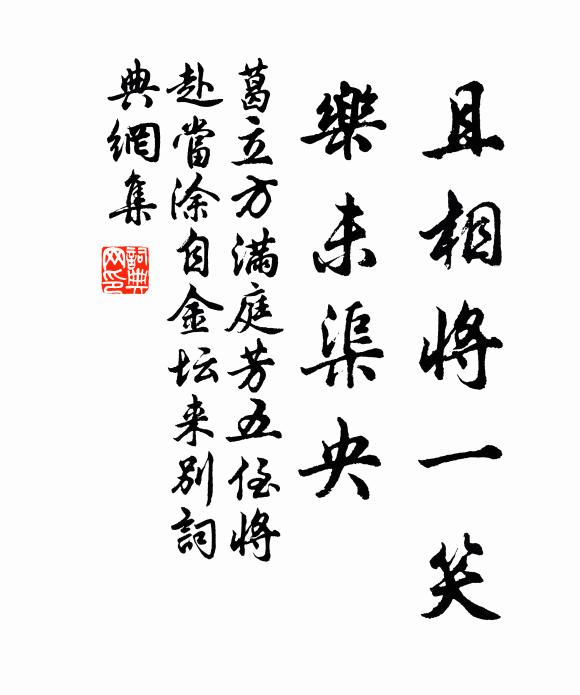 且相將一笑
樂未渠央
葛立方滿庭芳五侄將
赴當涂自金坛来別詞
典網集
詞典
网印